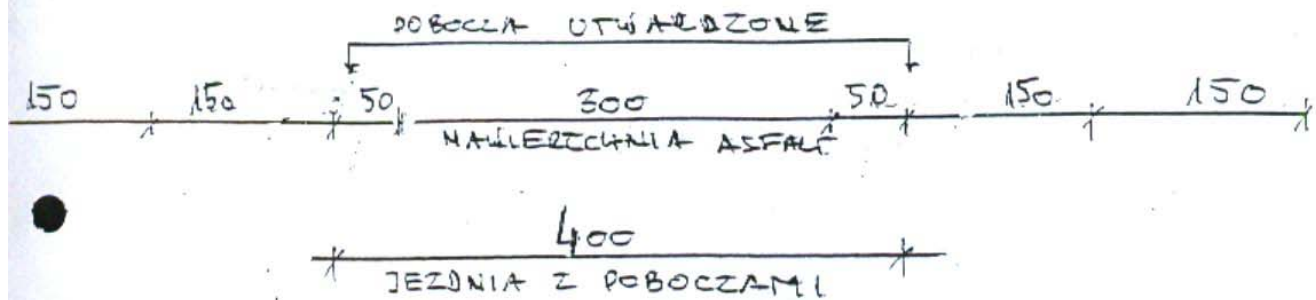 POBOCZA UTWARDZONE
150 150 50 300 50 150 150
NAWIERZCHNIA ASFALT
400
JEZDNIA Z POBOCZAMI